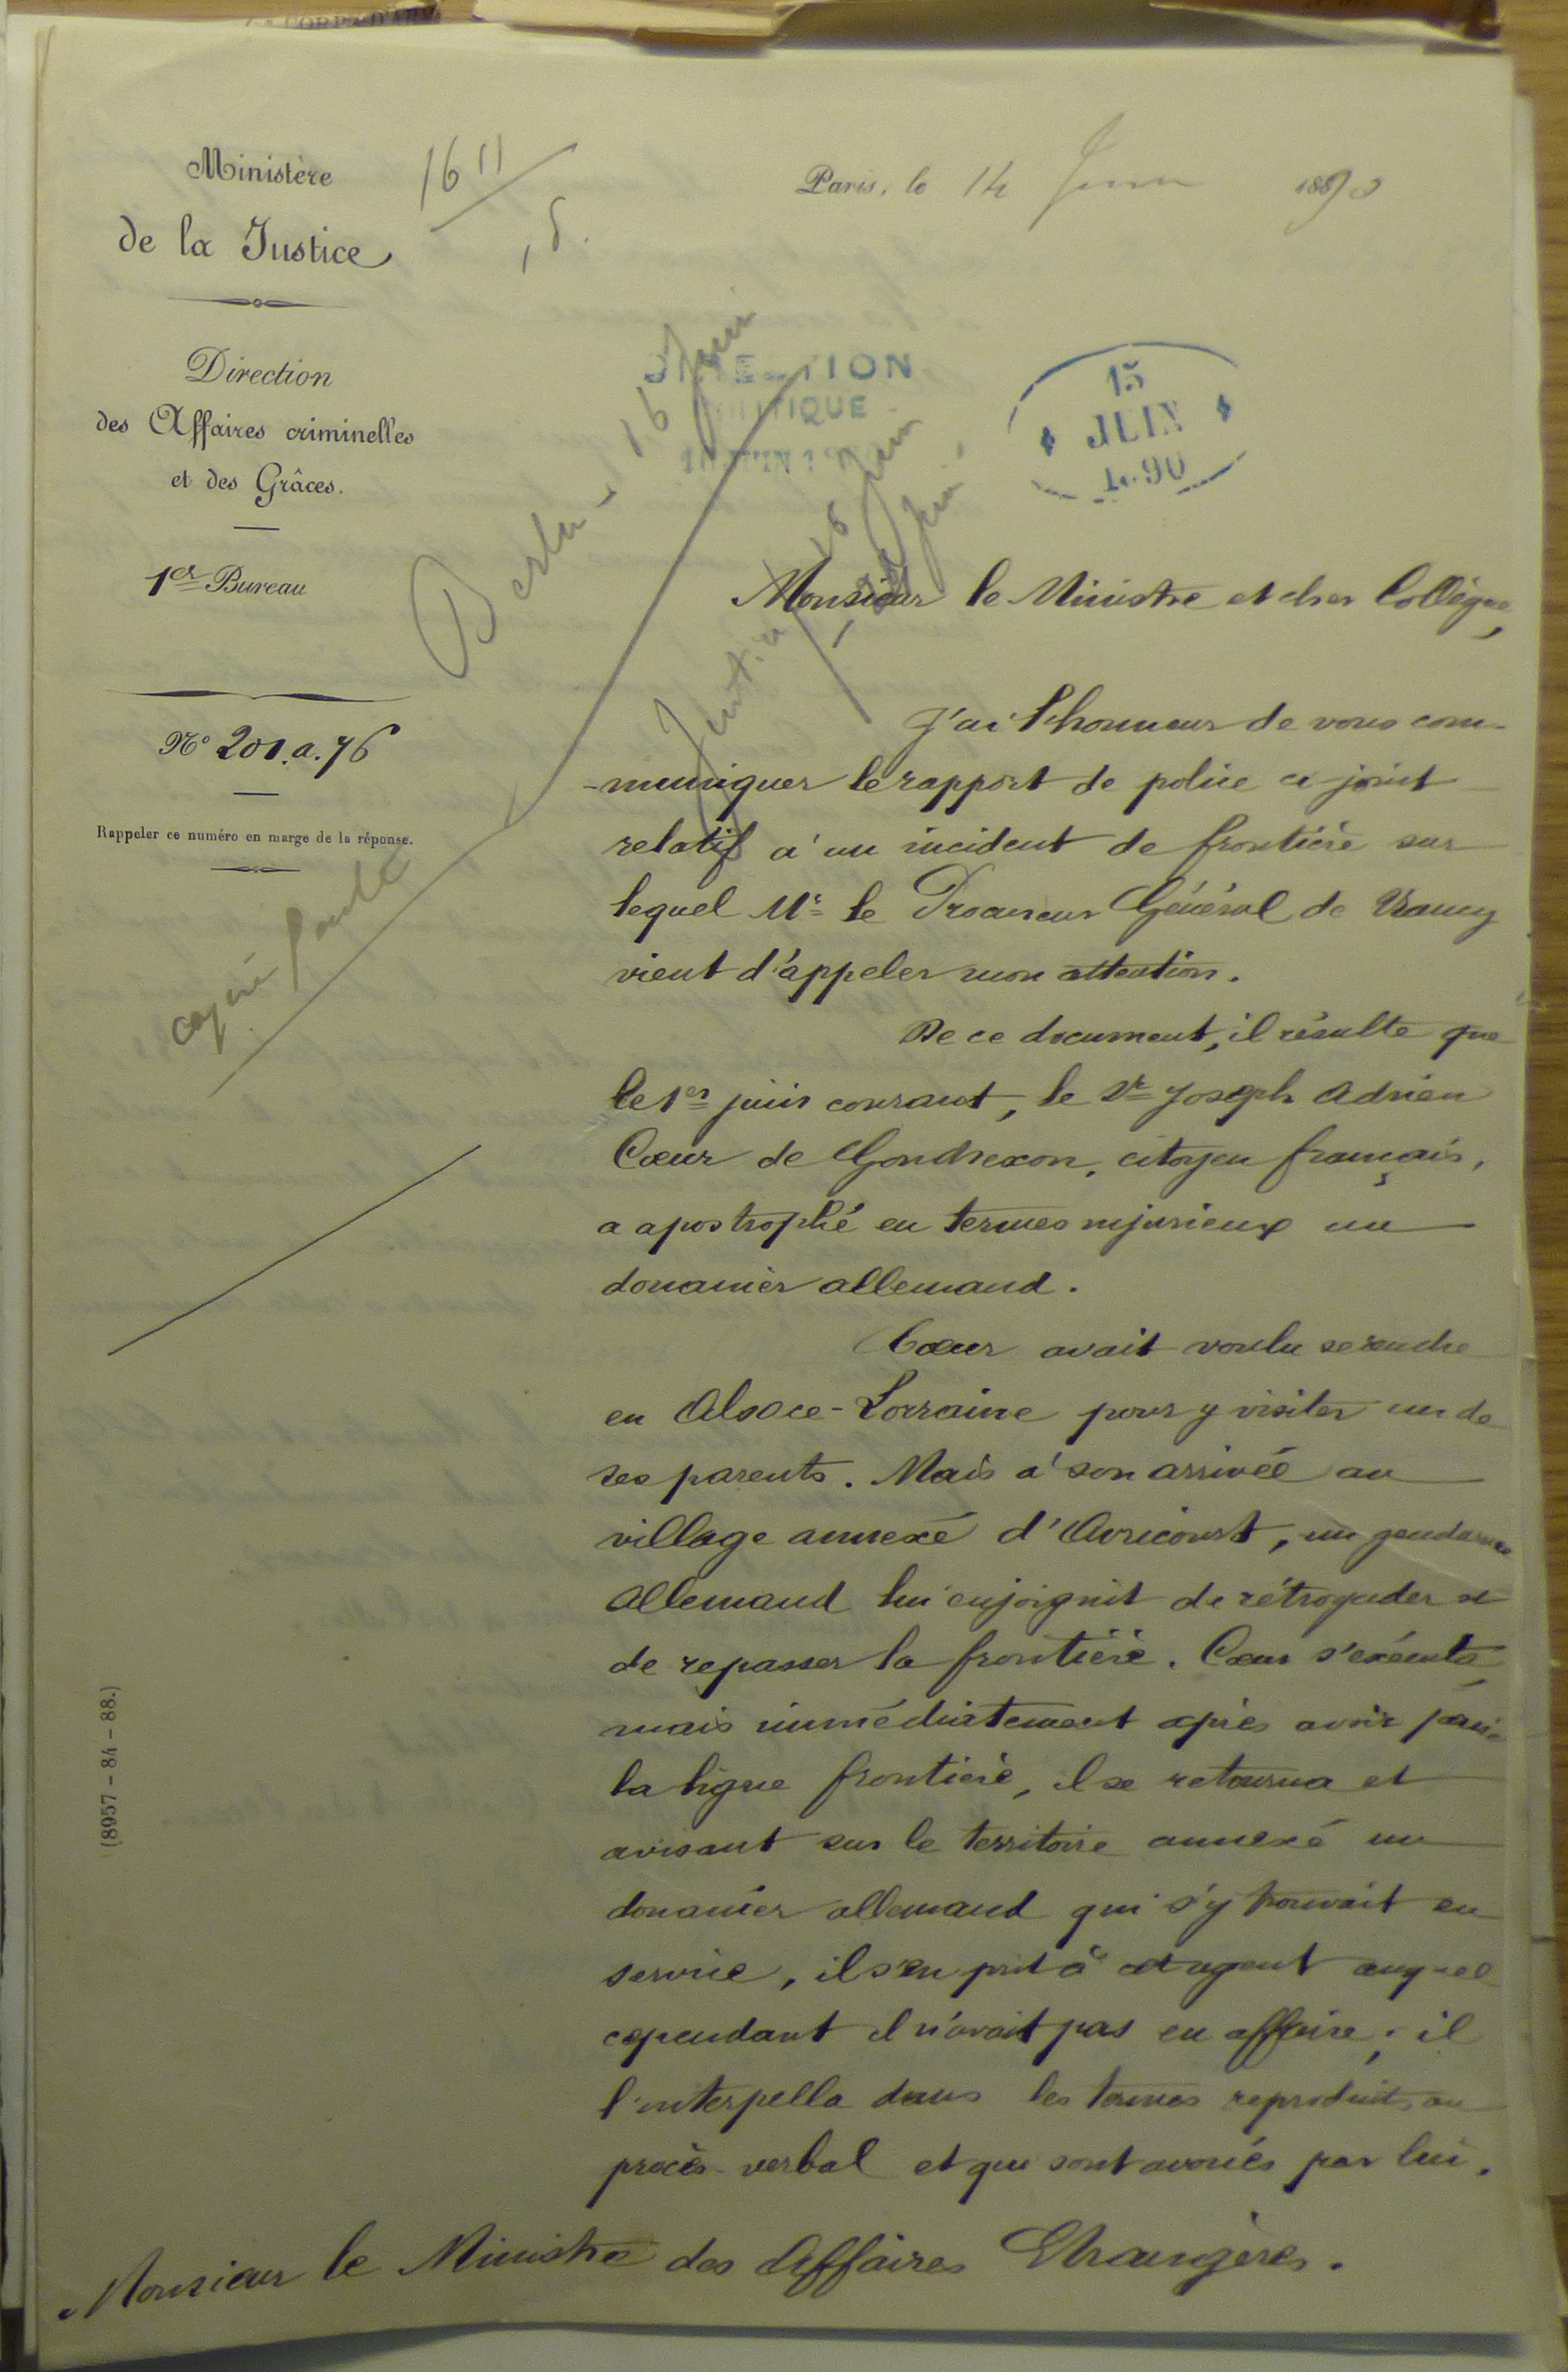 Ministère
de la Justice
Direction
des Affaires criminelles
et des Grâces.
1er Bureau
N° 201.a.76
Rappeler ce numéro en marge de la réponse.
(8957 – 84 – 88.)
1611
Paris, le 14 Juin 1890
DIRECTION
POLITIQUE
15
JUIN
1890
Berlin - 16 Juin
Justice 16 Juin
copié
Monsieur le Ministre et cher Collègue,
J'ai l'honneur de vous com-
-muniquer le rapport de police ci joint
relatif à un incident de frontière sur
lequel Mr le Procureur Général de Nancy
vient d'appeler mon attention.
De ce document, il résulte que
le 1er juin courant, le Sr Joseph Adrien
Cœur de Gondrexon, citoyen français,
a apostrophé en termes injurieux un
douanier allemand.
Cœur avait voulu se rendre
en Alsace-Lorraine pour y visiter un de
ses parents. Mais à son arrivée au
village annexé d'Avricourt, un gendarme
allemand lui enjoignit de rétrograder et
de repasser la frontière. Cœur s'exécuta,
mais immédiatement après avoir
la ligne frontière, il se retourna et
avisant sur le territoire annexé un
douanier allemand qui s'y trouvait en
service, il s'en prit à cet agent auquel
cependant il n'avait pas eu affaire ; il
l'interpella dans les termes reproduits au
procès-verbal et qui sont avoués par lui.
Monsieur le Ministre des Affaires Etrangères.